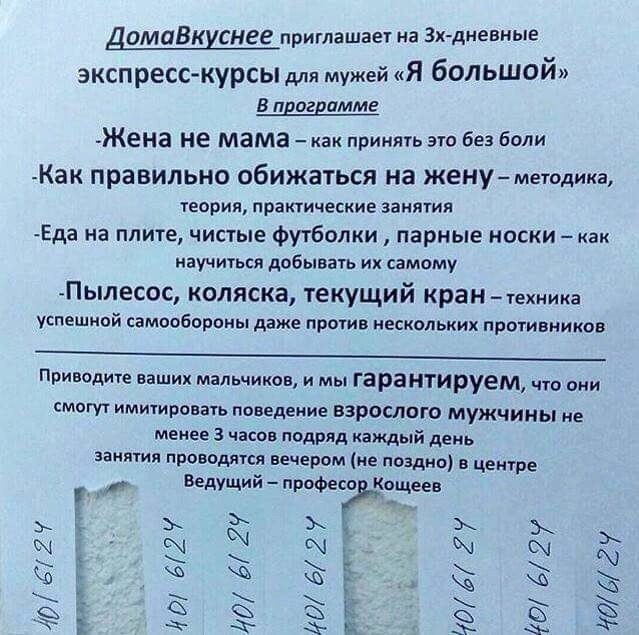 ДомаВкуснее приглашает на 3х-дневные
экспресс-курсы для мужей «Я большой»
В программе
-Жена не мама – как принять это без боли
-Как правильно обижаться на жену – методика,
теория, практические занятия
-Еда на плите, чистые футболки , парные носки – как
научиться добывать их самому
-Пылесос, коляска, текущий кран – техника
успешной самообороны даже против нескольких противников
Приводите ваших мальчиков, и мы гарантируем, что они
смогут имитировать поведение взрослого мужчины не
менее 3 часов подряд каждый день
занятия проводятся вечером (не поздно) в центре
Ведущий – професор Кощеев
401 6124
401 6124
401 6124
401 6124
401 6124
401 6124
401 6124